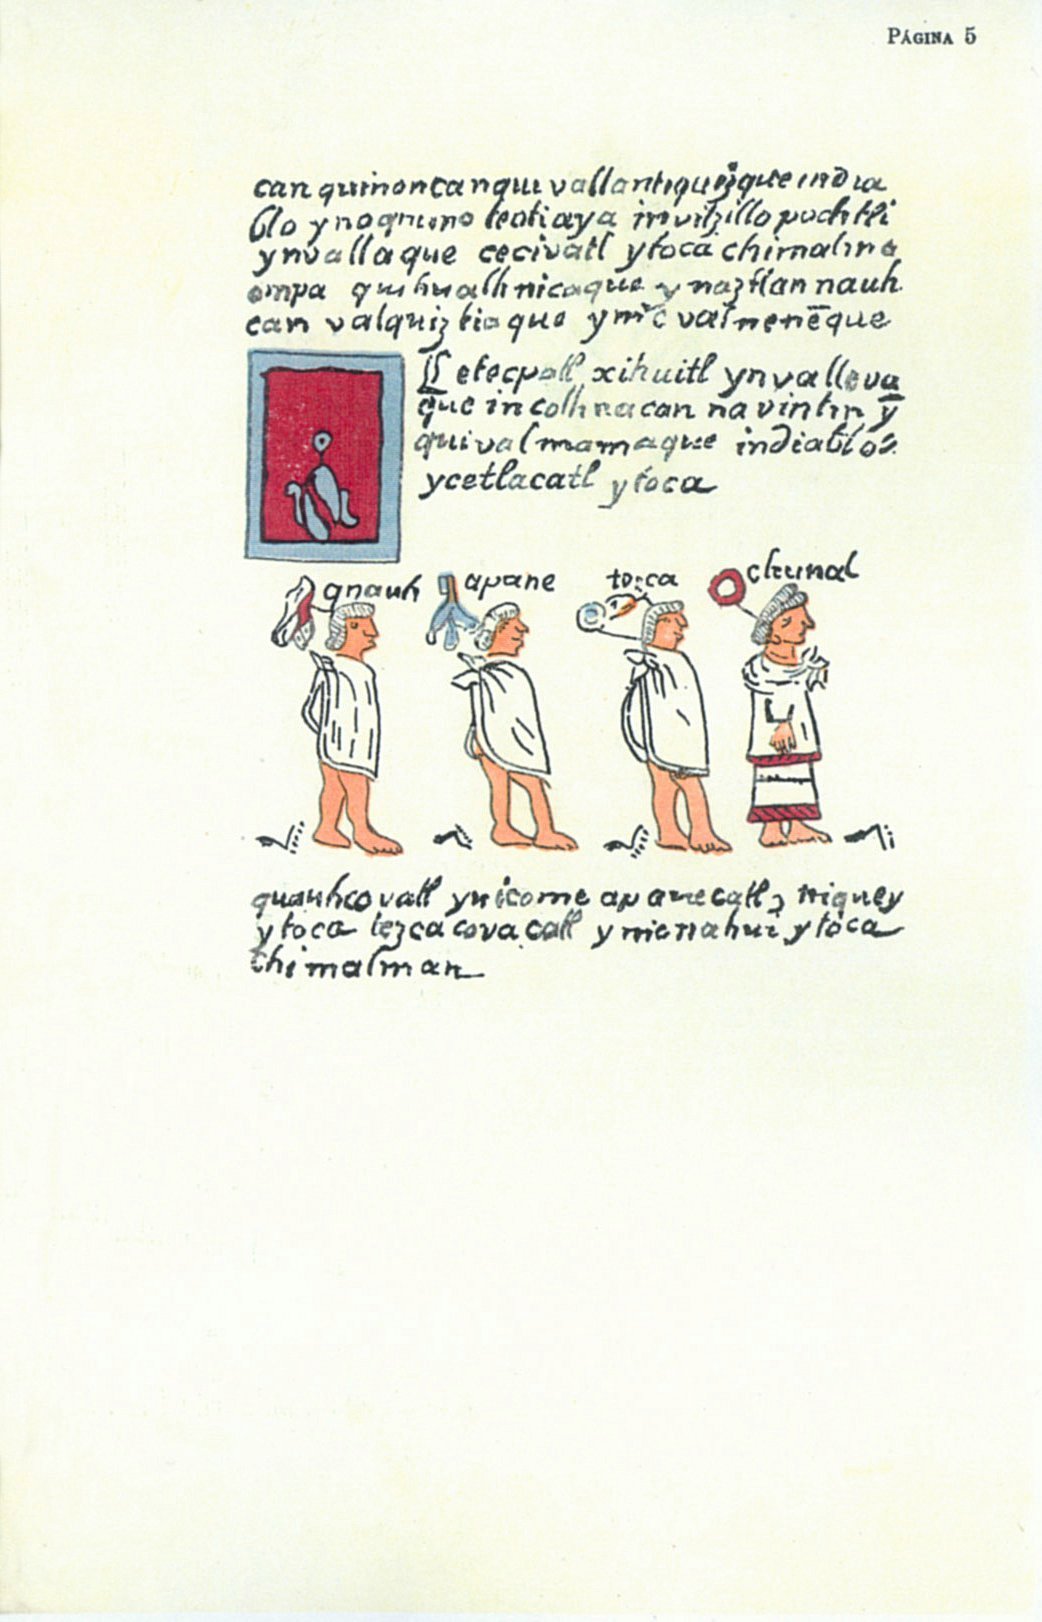 Página 5
can quinoncan qui vallantiquizque india
blo ynoquimo teotiaya invitzillopochtli
ynvallaque cecivatl ytoca chimalma
ompa quihualhnicaque ynaztlan nauh
can valquiztiaque ynic valnenēque
cetecpatl xihuitl ynvalleva
que incolhuacan navintin ȳ
quivalmamaque indiablos
ycetlacatl ytoca
quauh apane tezca chimal
quauhcovatl ynicome apanecatl niquey
ytoca tezcacovacatl ynicnahui ytoca
chimalman